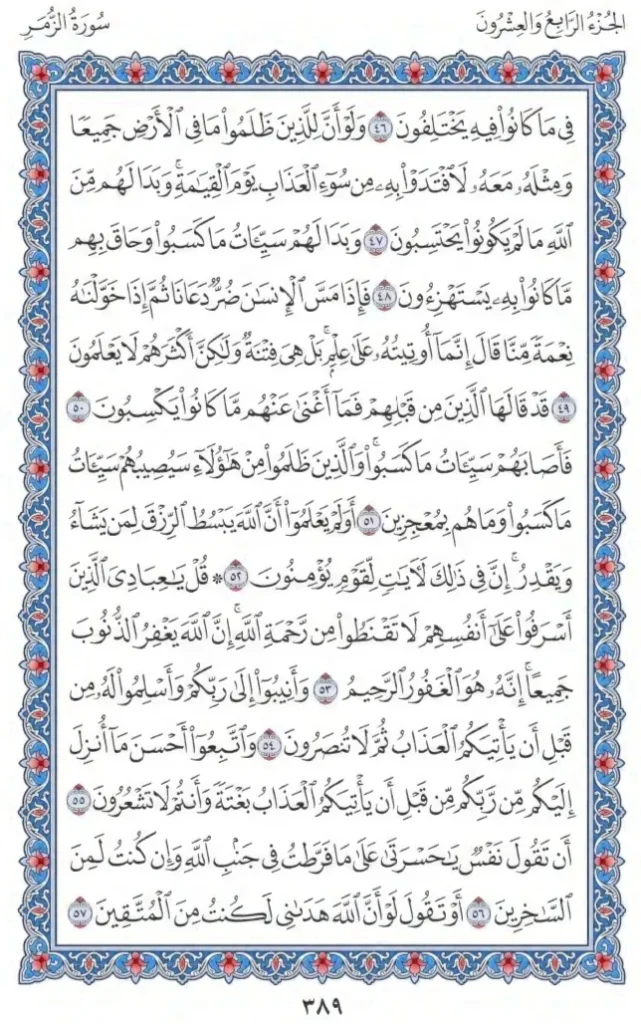 الجُزْءُ الرَّابِعُ وَالعِشْرُونَ
سُورَةُ الزُّمَرِ
فِي مَا كَانُواْ فِيهِ يَخْتَلِفُونَ ٤٦ وَلَوْ أَنَّ لِلَّذِينَ ظَلَمُواْ مَا فِي ٱلْأَرْضِ جَمِيعًا
وَمِثْلَهُۥ مَعَهُۥ لَٱفْتَدَوْاْ بِهِۦ مِن سُوٓءِ ٱلْعَذَابِ يَوْمَ ٱلْقِيَٰمَةِۚ وَبَدَا لَهُم مِّنَ
ٱللَّهِ مَا لَمْ يَكُونُواْ يَحْتَسِبُونَ ٤٧ وَبَدَا لَهُمْ سَيِّـَٔاتُ مَا كَسَبُواْ وَحَاقَ بِهِم
مَّا كَانُواْ بِهِۦ يَسْتَهْزِءُونَ ٤٨ فَإِذَا مَسَّ ٱلْإِنسَٰنَ ضُرٌّ دَعَانَا ثُمَّ إِذَا خَوَّلْنَٰهُ
نِعْمَةً مِّنَّا قَالَ إِنَّمَآ أُوتِيتُهُۥ عَلَىٰ عِلْمٍۭۚ بَلْ هِيَ فِتْنَةٌ وَلَٰكِنَّ أَكْثَرَهُمْ لَا يَعْلَمُونَ
٤٩ قَدْ قَالَهَا ٱلَّذِينَ مِن قَبْلِهِمْ فَمَآ أَغْنَىٰ عَنْهُم مَّا كَانُواْ يَكْسِبُونَ ٥٠
فَأَصَابَهُمْ سَيِّـَٔاتُ مَا كَسَبُواْۚ وَٱلَّذِينَ ظَلَمُواْ مِنْ هَٰٓؤُلَآءِ سَيُصِيبُهُمْ سَيِّـَٔاتُ
مَا كَسَبُواْ وَمَا هُم بِمُعْجِزِينَ ٥١ أَوَلَمْ يَعْلَمُوٓاْ أَنَّ ٱللَّهَ يَبْسُطُ ٱلرِّزْقَ لِمَن يَشَآءُ
وَيَقْدِرُۚ إِنَّ فِي ذَٰلِكَ لَأٓيَٰتٍ لِّقَوْمٍ يُؤْمِنُونَ ٥٢ * قُلْ يَٰعِبَادِيَ ٱلَّذِينَ
أَسْرَفُواْ عَلَىٰٓ أَنفُسِهِمْ لَا تَقْنَطُواْ مِن رَّحْمَةِ ٱللَّهِۚ إِنَّ ٱللَّهَ يَغْفِرُ ٱلذُّنُوبَ
جَمِيعًاۚ إِنَّهُۥ هُوَ ٱلْغَفُورُ ٱلرَّحِيمُ ٥٣ وَأَنِيبُوٓاْ إِلَىٰ رَبِّكُمْ وَأَسْلِمُواْ لَهُۥ مِن
قَبْلِ أَن يَأْتِيَكُمُ ٱلْعَذَابُ ثُمَّ لَا تُنصَرُونَ ٥٤ وَٱتَّبِعُوٓاْ أَحْسَنَ مَآ أُنزِلَ
إِلَيْكُم مِّن رَّبِّكُم مِّن قَبْلِ أَن يَأْتِيَكُمُ ٱلْعَذَابُ بَغْتَةً وَأَنتُمْ لَا تَشْعُرُونَ ٥٥
أَن تَقُولَ نَفْسٌ يَٰحَسْرَتَىٰ عَلَىٰ مَا فَرَّطتُ فِي جَنۢبِ ٱللَّهِ وَإِن كُنتُ لَمِنَ
ٱلسَّٰخِرِينَ ٥٦ أَوْ تَقُولَ لَوْ أَنَّ ٱللَّهَ هَدَىٰنِي لَكُنتُ مِنَ ٱلْمُتَّقِينَ ٥٧
٣٨٩